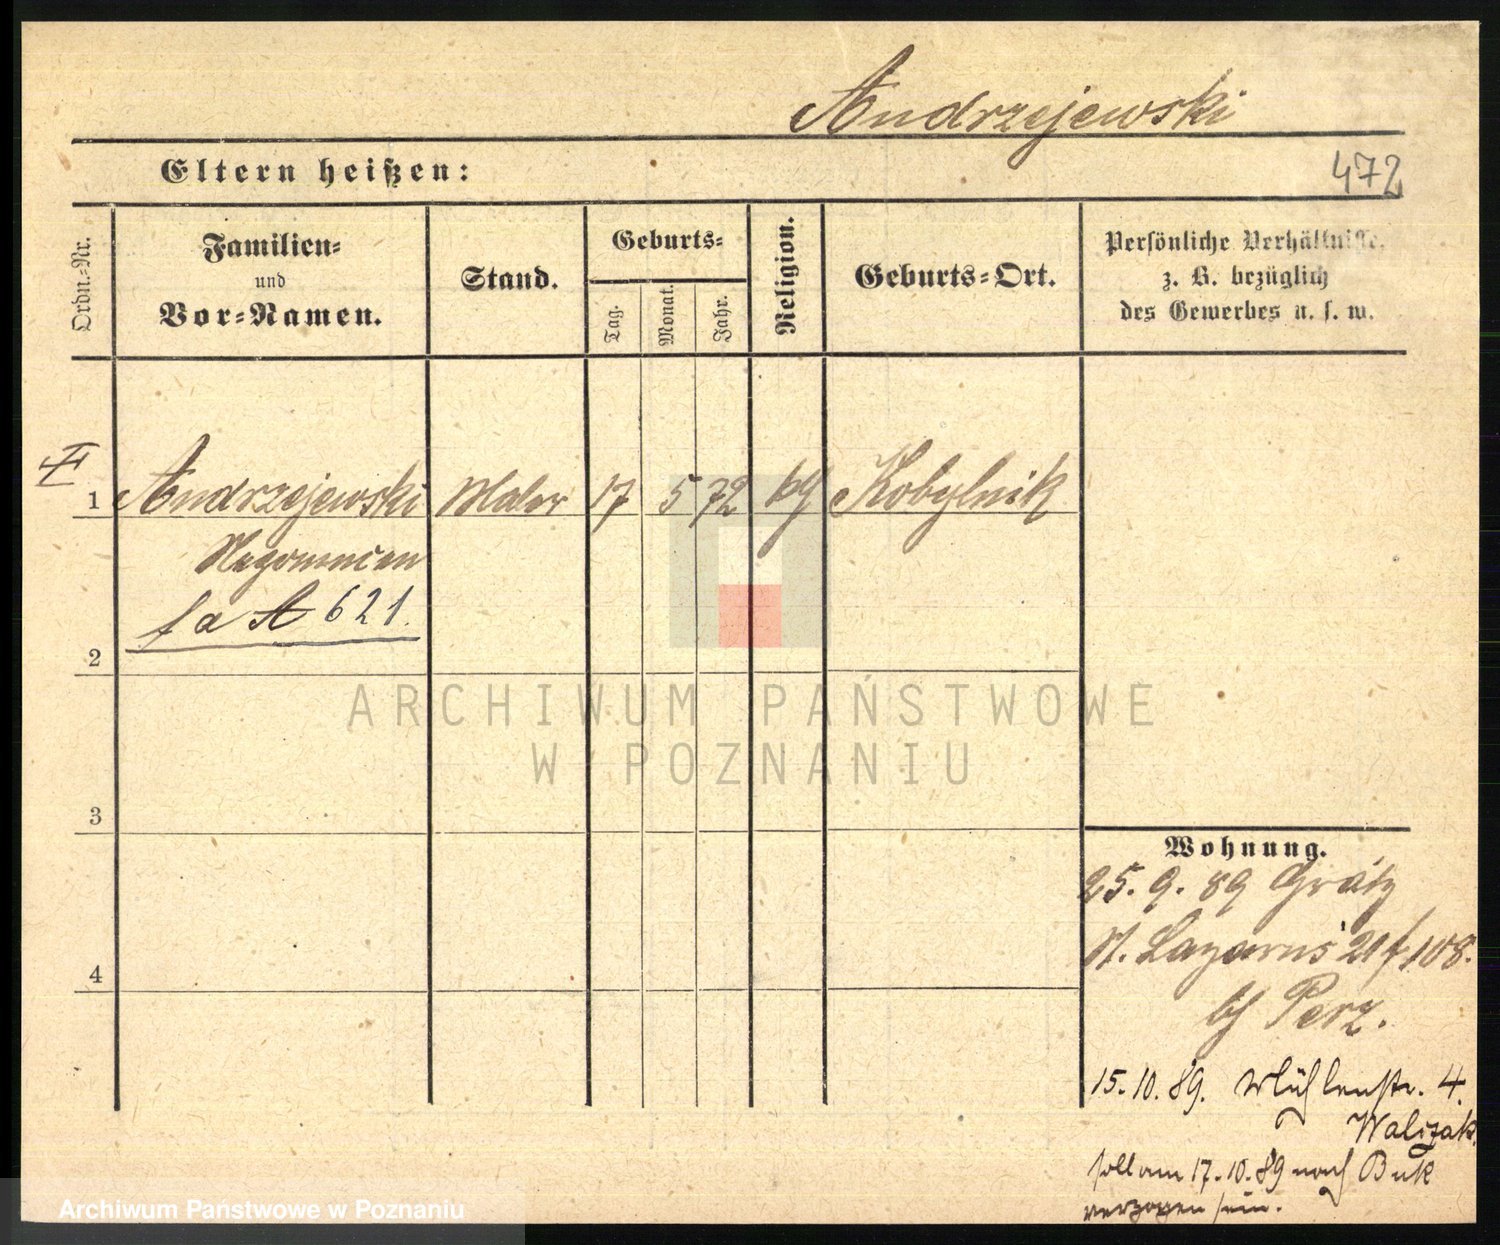 Andrzejewski
Eltern heißen:
472
Ordn.-Nr.
Familien-
und
Vor-Namen.
Stand.
Geburts-
Tag.
Monat.
Jahr.
Religion.
Geburts-Ort.
Persönliche Verhältnisse,
z. B. bezüglich
des Gewerbes u. s. w.
1 Andrzejewski Maler 17 5 72 kg Kobylnik
Nepomucen
fa A 621.
2
ARCHIWUM PAŃSTWOWE
W POZNANIU
3
4
Wohnung.
25. 9. 89 Grätz
St. Lazarus 108.
bſ Perz.
15. 10. 89. Mühlenstr. 4.
Walczak.
soll am 17. 10. 89 nach Buk
verzogen sein.
Archiwum Państwowe w Poznaniu